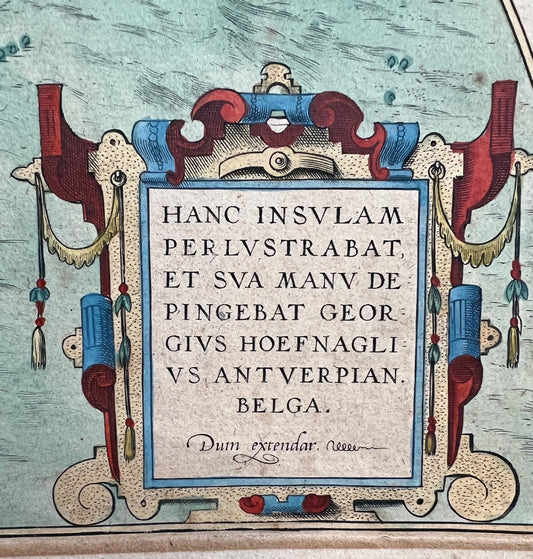 HANC INSVLAM
PERLVSTRABAT,
ET SVA MANV DE
PINGEBAT GEOR-
GIVS HOEFNAGLI-
VS ANTVERPIAN.
BELGA.
Dum extendar.